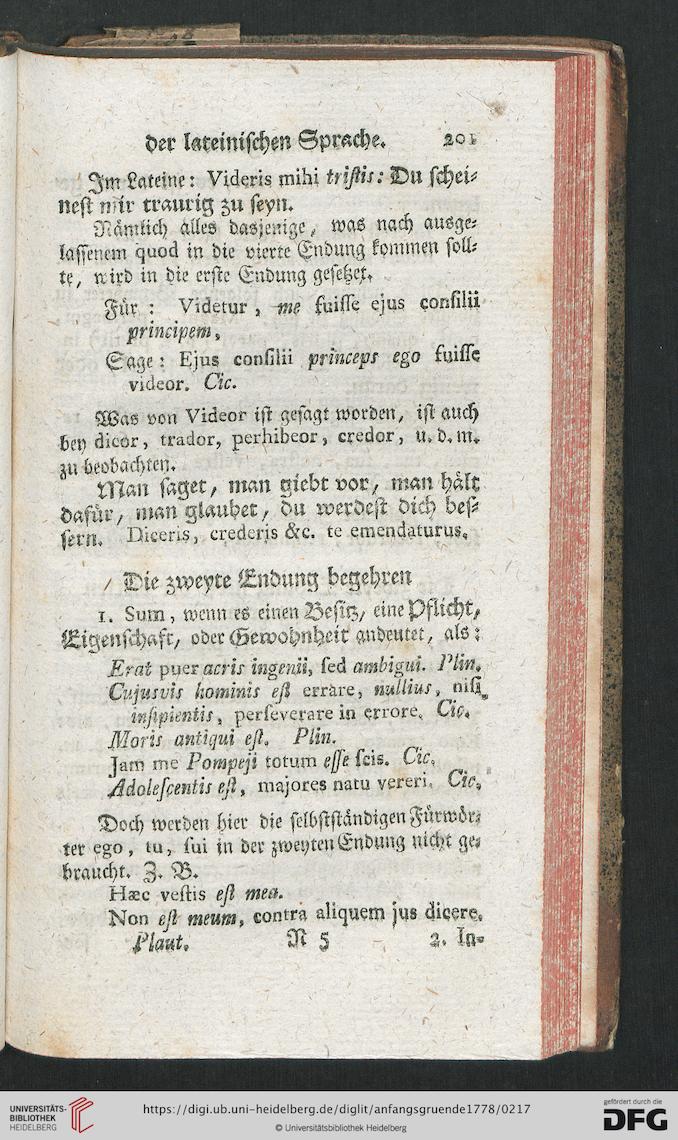 der lateinischen Sprache. 201
Im Lateine: Videris mihi tristis: Du schei-
nest mir traurig zu seyn.
Nämlich alles dasjenige, was nach ausge-
lassenem quod in die vierte Endung kommen soll-
te, wird in die erste Endung gesetzet.
Für: Videtur, me fuisse ejus consilii
principem,
Sage: Ejus consilii princeps ego fuisse
videor. Cic.
Was von Videor ist gesagt worden, ist auch
bey dicor, trador, perhibeor, credor, u. d. m.
zu beobachten.
Man saget, man giebt vor, man hält
dafür, man glaubet, du werdest dich bes-
sern. Diceris, crederis &c. te emendaturus.
Die zweyte Endung begehren
1. Sum, wenn es einen Besitz, eine Pflicht,
Eigenschaft, oder Gewohnheit andeutet, als:
Erat puer acris ingenii, sed ambigui. Plin.
Cujusvis hominis est errare, nullius, nisi
insipientis, perseverare in errore. Cic.
Moris antiqui est. Plin.
Jam me Pompeji totum esse scis. Cic.
Adolescentis est, majores natu vereri. Cic.
Doch werden hier die selbstständigen Fürwör-
ter ego, tu, sui in der zweyten Endung nicht ge-
braucht. Z. B.
Hæc vestis est mea.
Non est meum, contra aliquem jus dicere.
Plaut. N 5 2. In-
UNIVERSITÄTS-
BIBLIOTHEK
HEIDELBERG
https://digi.ub.uni-heidelberg.de/diglit/anfangsgruende1778/0217
© Universitätsbibliothek Heidelberg
gefördert durch die
DFG